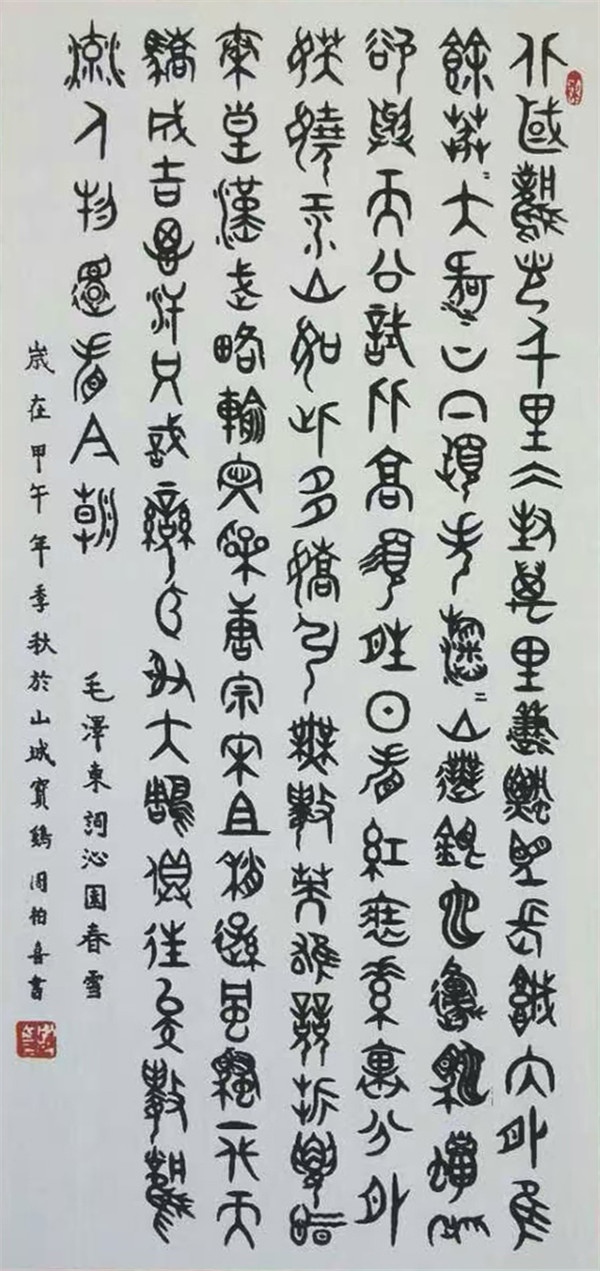 北國風光千里冰封萬里雪飄望長城內外惟
餘莽〻大河上下頓失滔〻山舞銀蛇原馳蠟象
欲與天公試比高須晴日看紅裝素裹分外
妖嬈江山如此多嬌引無數英雄競折腰惜
秦皇漢武略輸文采唐宗宋祖稍遜風騷一代天
驕成吉思汗只識彎弓射大雕俱往矣數風
流人物還看今朝
毛澤東詞沁園春雪
歲在甲午年季秋於山城寶鷄周柏喜書